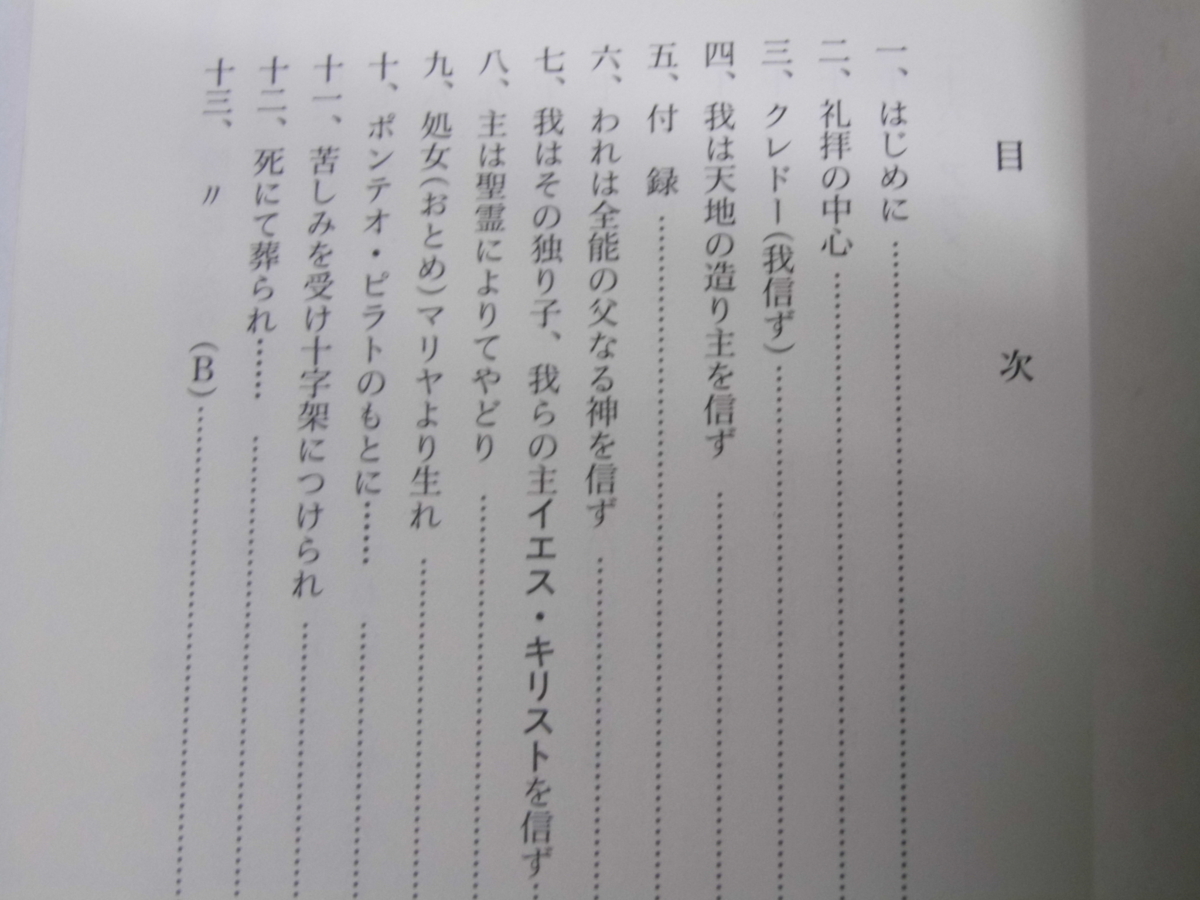 目次
一、はじめに……………………
二、礼拝の中心……………………
三、クレドー(我信ず)……………………
四、我は天地の造り主を信ず……………………
五、付録……………………
六、われは全能の父なる神を信ず……………………
七、我はその独り子、我らの主イエス・キリストを信ず…
八、主は聖霊によりてやどり……………………
九、処女(おとめ)マリヤより生れ……………………
十、ポンテオ・ピラトのもとに…… ……………………
十一、苦しみを受け十字架につけられ……………………
十二、死にて葬られ…… ……………………
十三、〃(B)……………………